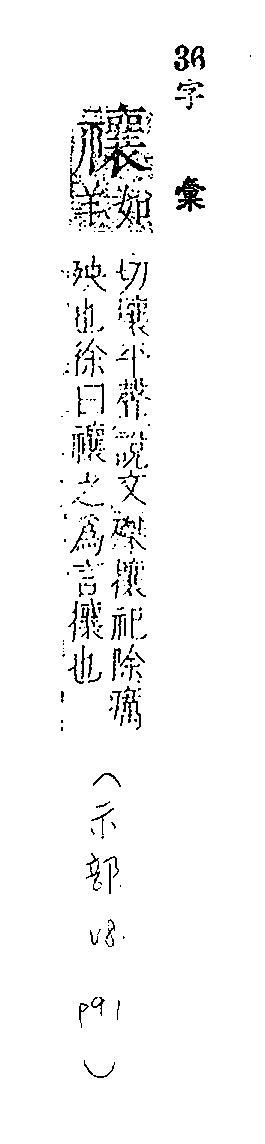 36字　彙
禳如
羊
切壤平聲說文磔攘祀除癘
殃也徐曰禳之為言攘也
（示部 v8. p91）